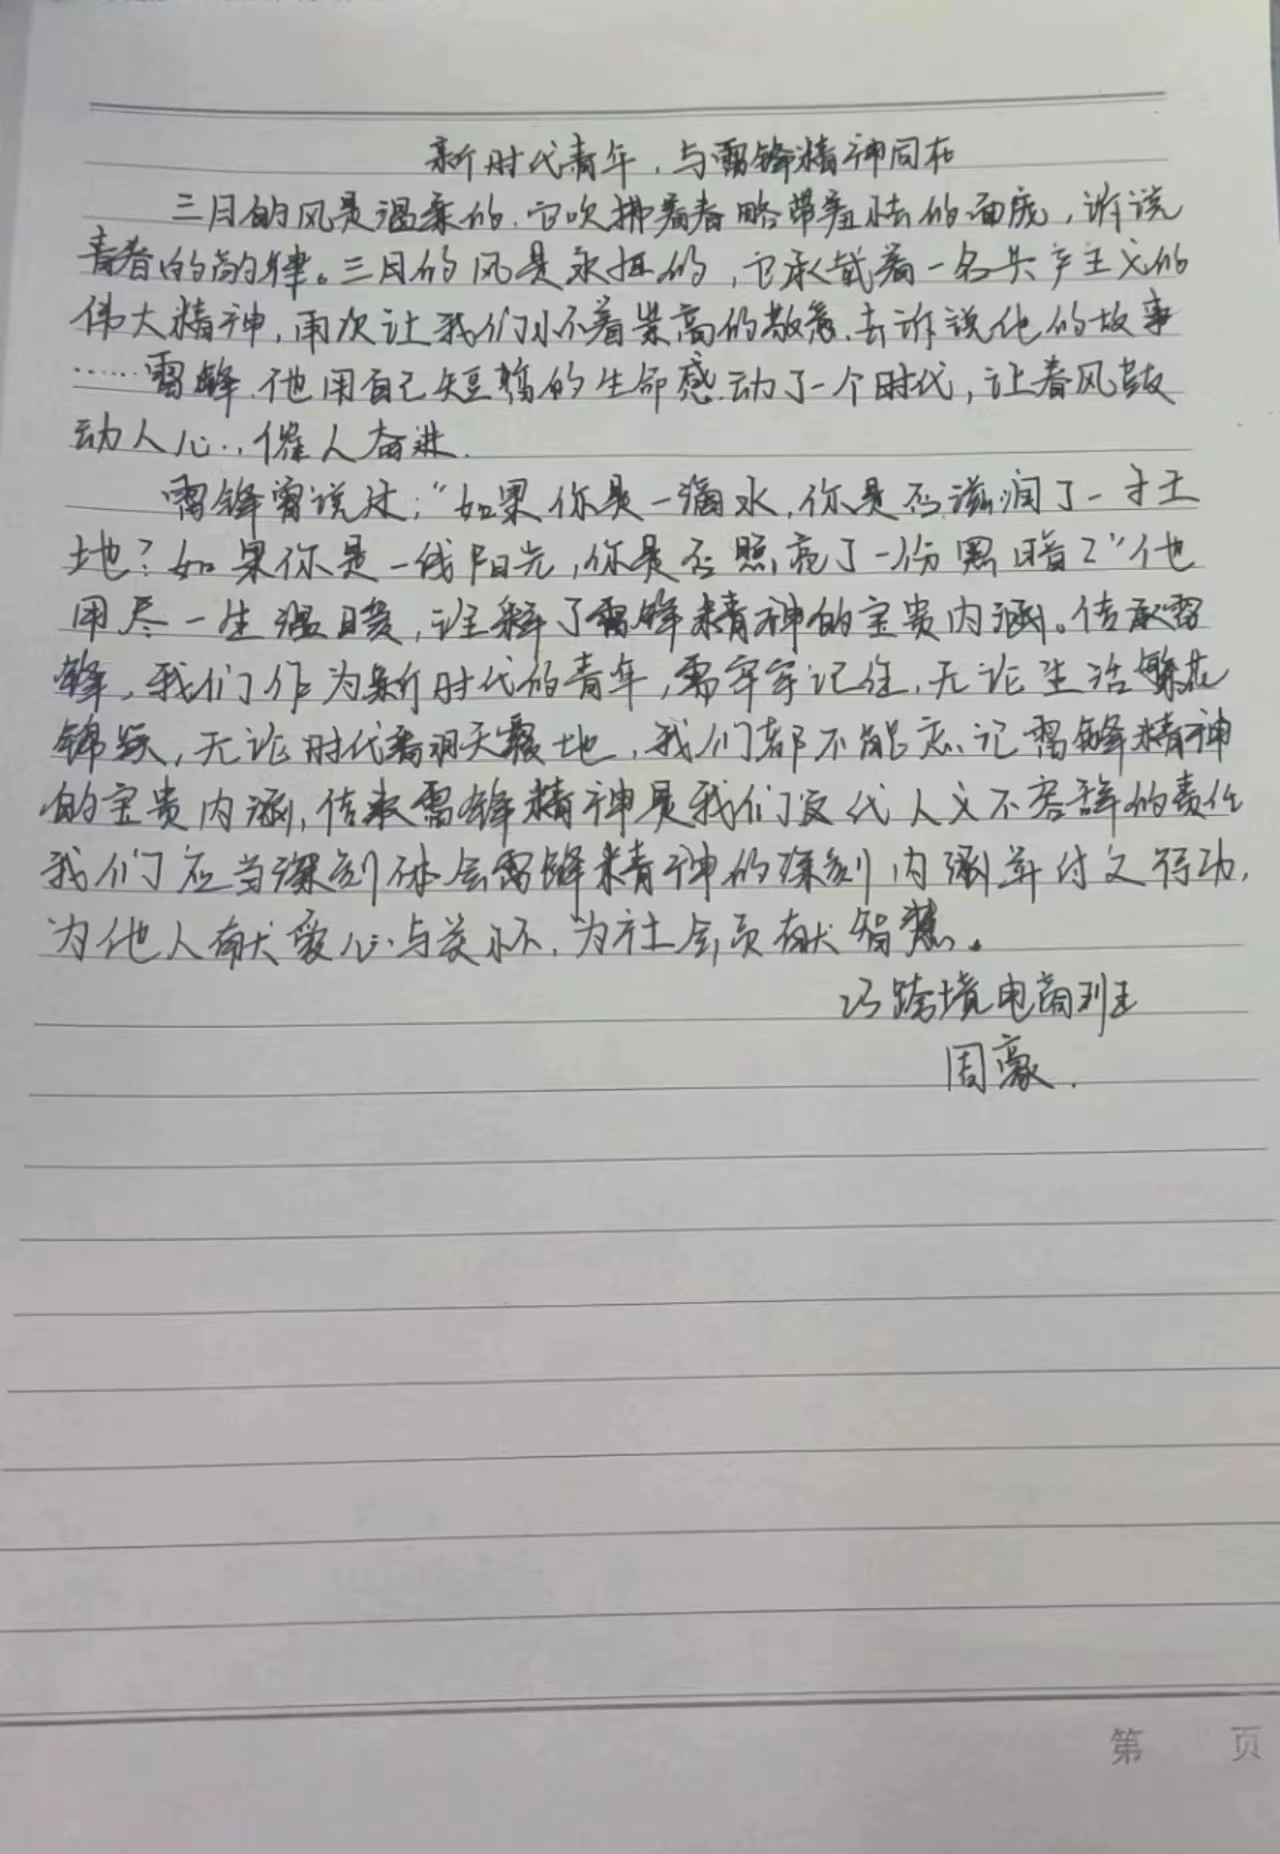 新时代青年，与雷锋精神同在
三月的风是温柔的，它吹拂着春略带羞怯的面庞，诉说
青春的韵律。三月的风是永恒的，它承载着一名共产主义的
伟大精神，再次让我们怀着崇高的敬意，去诉说他的故事
……雷锋，他用自己短暂的生命感动了一个时代，让春风鼓
动人心，催人奋进。
雷锋曾说过："如果你是一滴水，你是否滋润了一寸土
地？如果你是一线阳光，你是否照亮了一份黑暗？"他
用尽一生温暖，诠释了雷锋精神的宝贵内涵。传承雷
锋，我们作为新时代的青年，需牢牢记住，无论生活繁花
锦簇，无论时代翻天覆地，我们都不能忘记雷锋精神
的宝贵内涵，传承雷锋精神是我们这代人义不容辞的责任
我们应当深刻体会雷锋精神的深刻内涵并付之行动，
为他人献爱心与关怀，为社会贡献智慧。
23跨境电商班
周豪.
第 页